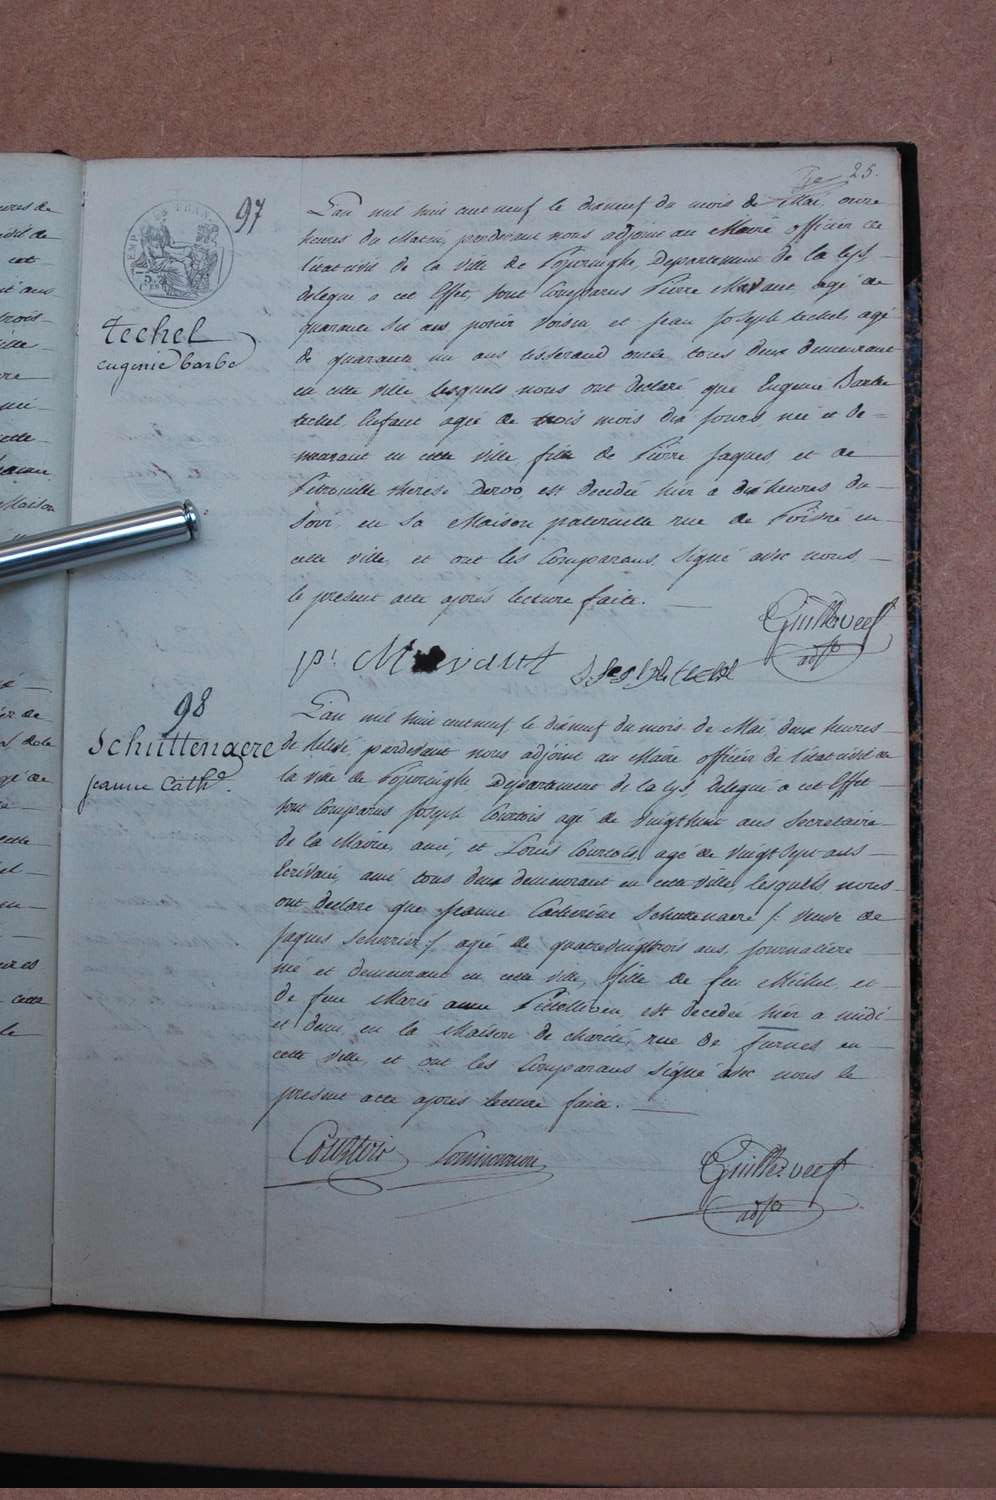 25.
97
techel
eugenie barbe
L'an mil huit cent neuf le dixneuf du mois de Mai, onze
heures du Matin, pardevant nous adjoint au Maire officier de
l'état civil de la ville de Poperinghe, Departement de la Lys
delegué a cet Effet, sont Comparus Pierre Madant, agé de
quarante six ans, potier voisin, et Jean Joseph techel, agé
de quarante un ans tisserand oncle, tous deux demeurant
en cette ville lesquels nous ont declaré que Eugenie Barbe
techel Enfant agée de trois mois dix jours, née et de=
meurant en cette ville fille de Pierre Jaques et de
Petronille therese Deroo, est decedée hier a dix heures du
soir, en sa Maison paternelle rue de en
cette ville, et ont les Comparans signé avec nous
le present acte après lecture faite.
Guillewerf
adjt
pr.
98
Schuttenaere
jeanne Cathe.
L'an mil huit cent neuf, le dixneuf du mois de Mai, deux heures
de relevé, pardevant nous adjoint au Maire officier de l'état civil de
la ville de Poperinghe Departement de la Lys, delegué a cet Effet
sont Comparus Joseph Courtois agé de vingt huit ans secretaire
de la Mairie, ami, et Louis Courtois, agé de vingt sept ans
Ecrivain, ami tous deux demeurant en cette ville, lesquels nous
ont declaré que Jeanne Catherine Schuttenaere /: veuve de
Jaques :/ agée de quatrevingttrois ans, journalière
née et demeurant en cette ville, fille de feu Michel, et
de feue Marie anne, est decedée hier a midi
et demi, en la Maison de charité, rue de furnes en
cette ville, et ont les Comparans signé avec nous le
present acte après lecture faite.
Courtois
Guillewerf
adjt